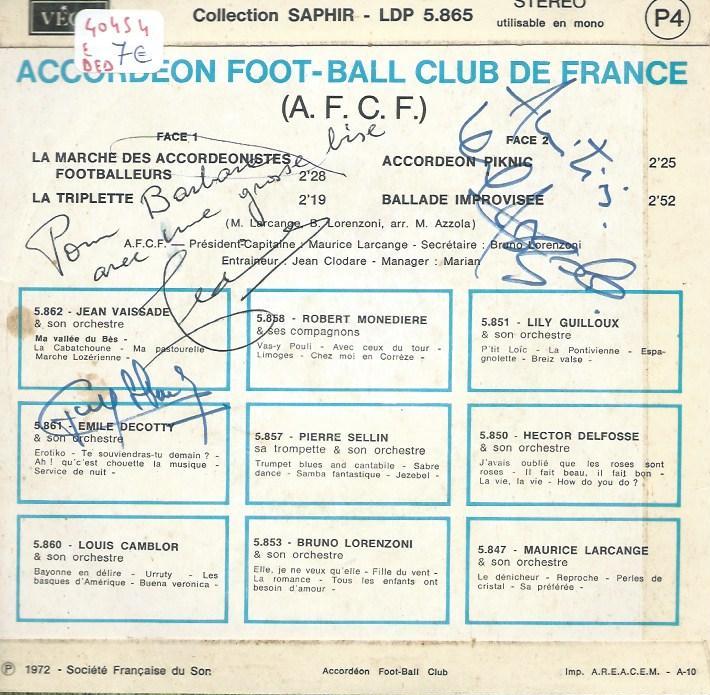 Collection SAPHIR - LDP 5.865
STEREO
utilisable en mono
P4
40454
E
DED 7€
ACCORDEON FOOT-BALL CLUB DE FRANCE
(A. F. C. F.)
FACE 1
LA MARCHE DES ACCORDEONISTES
FOOTBALLEURS 2'28
LA TRIPLETTE 2'19
FACE 2
ACCORDEON PIKNIC 2'25
BALLADE IMPROVISEE 2'52
(M. Larcange, B. Lorenzoni, arr. M. Azzola)
A.F.C.F. — Président-Capitaine : Maurice Larcange - Secrétaire : Bruno Lorenzoni
Entraîneur : Jean Clodare - Manager : Marian
Pour Barbara
avec une grosse bise
5.862 - JEAN VAISSADE
& son orchestre
Ma vallée du Bès -
La Cabatchoune - Ma pastourelle
Marche Lozérienne -
5.858 - ROBERT MONEDIERE
& ses compagnons
Vas-y Pouli - Avec ceux du tour -
Limoges - Chez moi en Corrèze -
5.851 - LILY GUILLOUX
& son orchestre
P'tit Loïc - La Pontivienne - Espa-
gnolette - Breiz valse -
5.861 - EMILE DECOTTY
& son orchestre
Erotiko - Te souviendras-tu demain ? -
Ah ! qu'c'est chouette la musique -
Service de nuit -
5.857 - PIERRE SELLIN
sa trompette & son orchestre
Trumpet blues and cantabile - Sabre
dance - Samba fantastique - Jezebel -
5.850 - HECTOR DELFOSSE
& son orchestre
J'avais oublié que les roses sont
roses - Il fait beau, il fait bon -
La vie, la vie - How do you do ?
5.860 - LOUIS CAMBLOR
& son orchestre
Bayonne en délire - Urruty - Les
basques d'Amérique - Buena veronica -
5.853 - BRUNO LORENZONI
& son orchestre
Elle, je ne veux qu'elle - Fille du vent -
La romance - Tous les enfants ont
besoin d'amour -
5.847 - MAURICE LARCANGE
& son orchestre
Le dénicheur - Reproche - Perles de
cristal - Sa préférée -
℗ 1972 - Société Française du Son
Accordéon Foot-Ball Club
Imp. A.R.E.A.C.E.M. - A-10